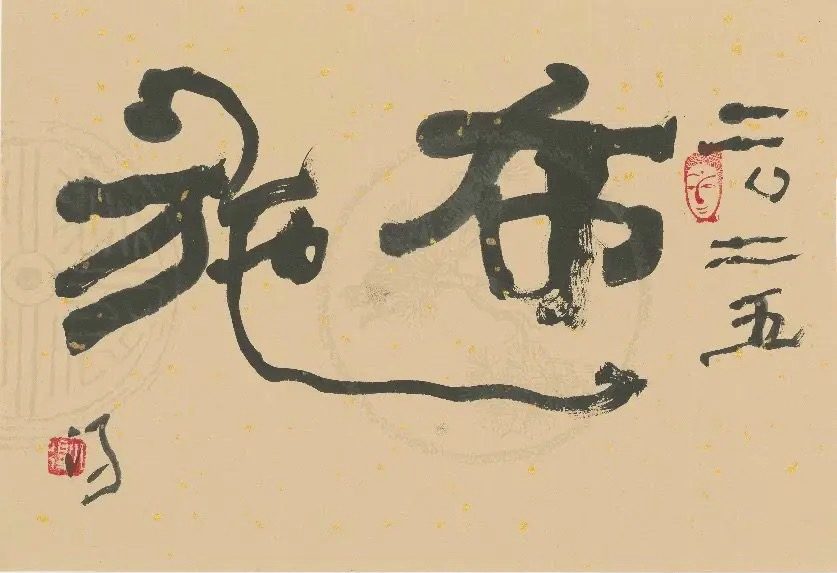 二〇二五
布施